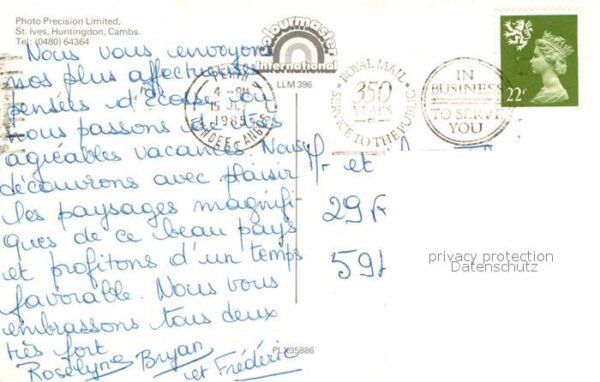 Photo Precision Limited,
St. Ives, Huntingdon, Cambs.
Tel: (0480) 64364
colourmaster
International
LLM 396
Nous vous envoyons
nos plus affectueuses
pensées d'Ecosse où
nous passons de très
agréables vacances. Nous
découvrons avec plaisir
les paysages magnifi-
ques de ce beau pays
et profitons d'un temps
favorable. Nous vous
embrassons tous deux
très fort
Roselyne Bryan
et Frédéri
PLX35886
4 - PM
15 JLY
1985
ROYAL MAIL
350
YEARS
SERVICE TO THE PUBLIC
IN
BUSINESS
TO SERVE
YOU
22P
et
29
59
privacy protection
Datenschutz